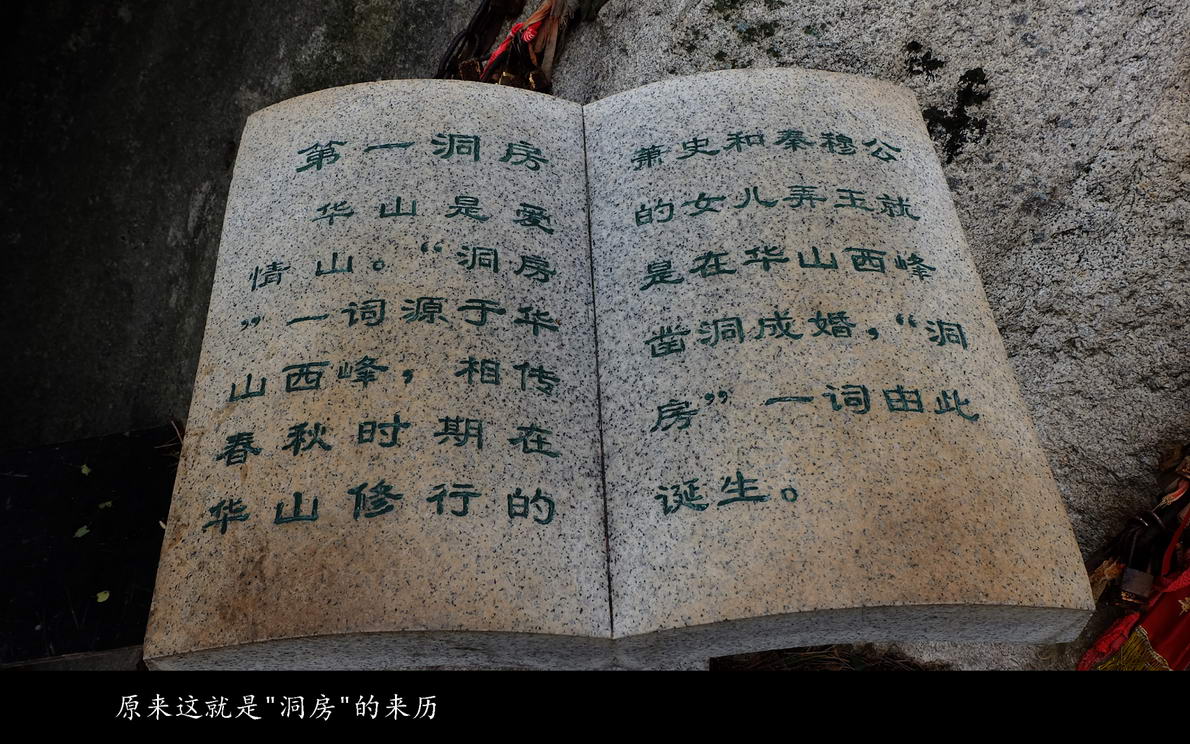 第一洞房
华山是爱
情山。“洞房
”一词源于华
山西峰，相传
春秋时期在
华山修行的
萧史和秦穆公
的女儿弄玉就
是在华山西峰
凿洞成婚，“洞
房”一词由此
诞生。
原来这就是"洞房"的来历